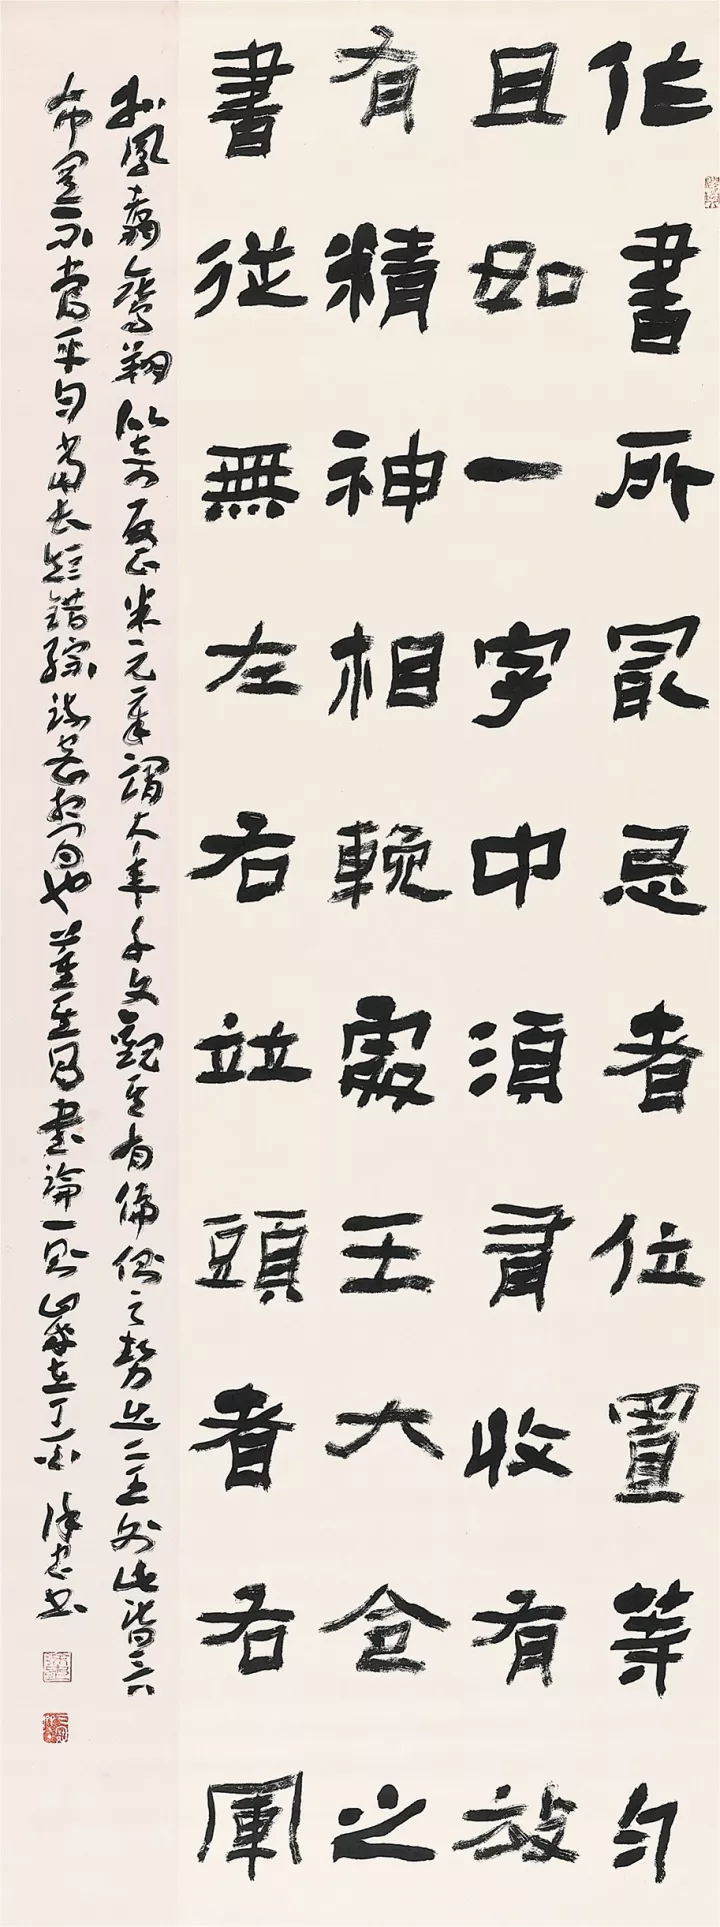 作書所最忌者位置等勻
且如一字中須有收有放
有精神相輓處王大令之
書從無左右竝頭者右軍
如鳳翥鸞翔似奇反正米元章謂大年千文觀其有偏側之勢出二王外此皆言
布置不當平勻當長短錯綜疏密相間也董其昌書論一則歲在丁酉 書